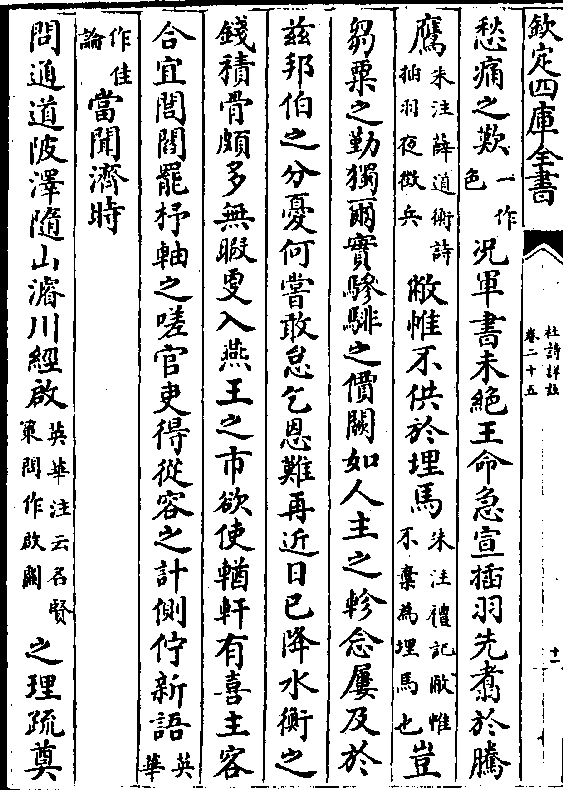 欽定四庫全書
杜詩詳註
卷二十五
十一
愁痛之歎一作色况軍書未絶王命急宣插羽先翥於騰
鷹朱注薛道衡詩插羽夜徴兵敝惟不供於埋馬朱注禮記敝惟不棄為埋馬也豈
芻粟之勤獨爾實驂騑之價闕如人主之軫念屢及於
兹邦伯之分憂何嘗敢怠乞恩難再近日已降水衡之
錢積骨頗多無暇更入燕王之市欲使輶軒有喜主客
合宜閭閻罷杼軸之嗟官吏得從容之計側佇新語英華
作佳論當聞濟時
問通道陂澤隨山濬川經啟英華注云名賢策問作啟闢之理疏奠